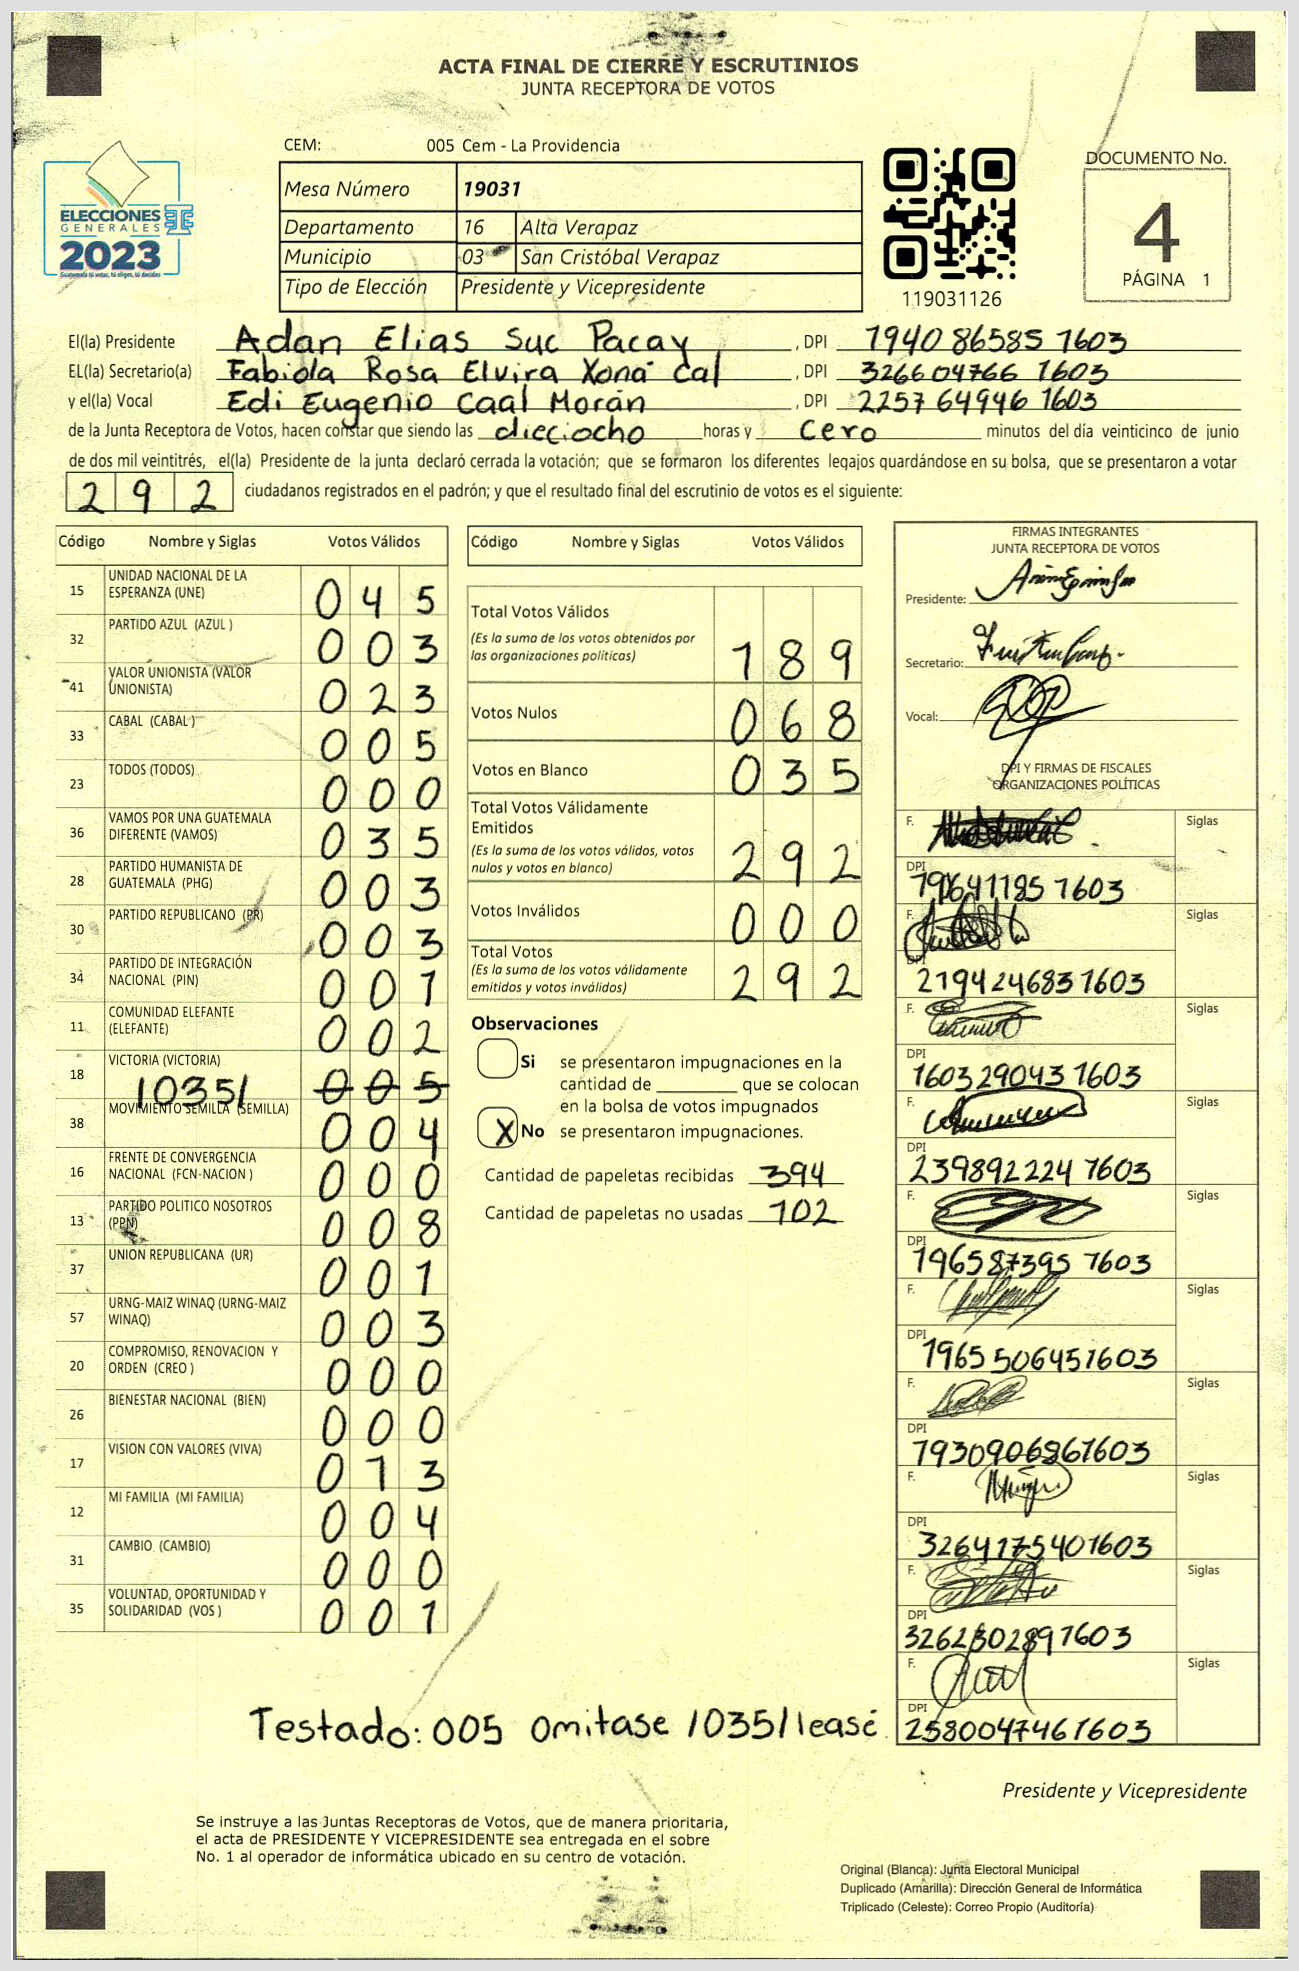 ACTA FINAL DE CIERRE Y ESCRUTINIOS
JUNTA RECEPTORA DE VOTOS
CEM: 005 Cem - La Providencia
ELECCIONES
GENERALES
2023
Mesa Número 19031
Departamento 16 Alta Verapaz
Municipio 03 San Cristóbal Verapaz
Tipo de Elección Presidente y Vicepresidente
119031126
DOCUMENTO No.
4
PÁGINA 1
El(la) Presidente Adan Elias Suc Pacay , DPI 1940 86585 1603
EL(la) Secretario(a) Fabiola Rosa Elvira Xoná Cal , DPI 326604766 1603
y el(la) Vocal Edi Eugenio Caal Morán , DPI 2257 64946 1603
de la Junta Receptora de Votos, hacen constar que siendo las dieciocho horas y cero minutos del día veinticinco de junio
de dos mil veintitrés, el(la) Presidente de la junta declaró cerrada la votación; que se formaron los diferentes legajos quardándose en su bolsa, que se presentaron a votar
292 ciudadanos registrados en el padrón; y que el resultado final del escrutinio de votos es el siguiente:
Código Nombre y Siglas Votos Válidos
15 UNIDAD NACIONAL DE LA ESPERANZA (UNE) 045
32 PARTIDO AZUL (AZUL ) 003
41 VALOR UNIONISTA (VALOR UNIONISTA) 023
33 CABAL (CABAL ) 005
23 TODOS (TODOS) 000
36 VAMOS POR UNA GUATEMALA DIFERENTE (VAMOS) 035
28 PARTIDO HUMANISTA DE GUATEMALA (PHG) 003
30 PARTIDO REPUBLICANO (PR) 003
34 PARTIDO DE INTEGRACIÓN NACIONAL (PIN) 001
11 COMUNIDAD ELEFANTE (ELEFANTE) 002
18 VICTORIA (VICTORIA) /035/ 005
38 MOVIMIENTO SEMILLA (SEMILLA) 004
16 FRENTE DE CONVERGENCIA NACIONAL (FCN-NACION ) 000
13 PARTIDO POLITICO NOSOTROS (PPN) 008
37 UNION REPUBLICANA (UR) 001
57 URNG-MAIZ WINAQ (URNG-MAIZ WINAQ) 003
20 COMPROMISO, RENOVACION Y ORDEN (CREO ) 000
26 BIENESTAR NACIONAL (BIEN) 000
17 VISION CON VALORES (VIVA) 013
12 MI FAMILIA (MI FAMILIA) 004
31 CAMBIO (CAMBIO) 000
35 VOLUNTAD, OPORTUNIDAD Y SOLIDARIDAD (VOS ) 001
Código Nombre y Siglas Votos Válidos
Total Votos Válidos 189
(Es la suma de los votos obtenidos por
las organizaciones políticas)
Votos Nulos 068
Votos en Blanco 035
Total Votos Válidamente
Emitidos 292
(Es la suma de los votos válidos, votos
nulos y votos en blanco)
Votos Inválidos 000
Total Votos 292
(Es la suma de los votos válidamente
emitidos y votos inválidos)
Observaciones
Si se presentaron impugnaciones en la
cantidad de ________ que se colocan
en la bolsa de votos impugnados
X No se presentaron impugnaciones.
Cantidad de papeletas recibidas 394
Cantidad de papeletas no usadas 102
FIRMAS INTEGRANTES
JUNTA RECEPTORA DE VOTOS
Presidente:
Secretario:
Vocal:
DPI Y FIRMAS DE FISCALES
ORGANIZACIONES POLÍTICAS
F. Siglas
DPI
F. Siglas
DPI
219424683 1603
F. Siglas
DPI
160329043 1603
F. Siglas
DPI
239892224 1603
F. Siglas
DPI
196587395 1603
F. Siglas
DPI
1965 50645 1603
F. Siglas
DPI
193090686 1603
F. Siglas
DPI
326417540 1603
F. Siglas
DPI
326230289 1603
F. Siglas
DPI
258004746 1603
Testado: 005 Omitase /035/ leasé
Presidente y Vicepresidente
Se instruye a las Juntas Receptoras de Votos, que de manera prioritaria,
el acta de PRESIDENTE Y VICEPRESIDENTE sea entregada en el sobre
No. 1 al operador de informática ubicado en su centro de votación.
Original (Blanca): Junta Electoral Municipal
Duplicado (Amarilla): Dirección General de Informática
Triplicado (Celeste): Correo Propio (Auditoría)